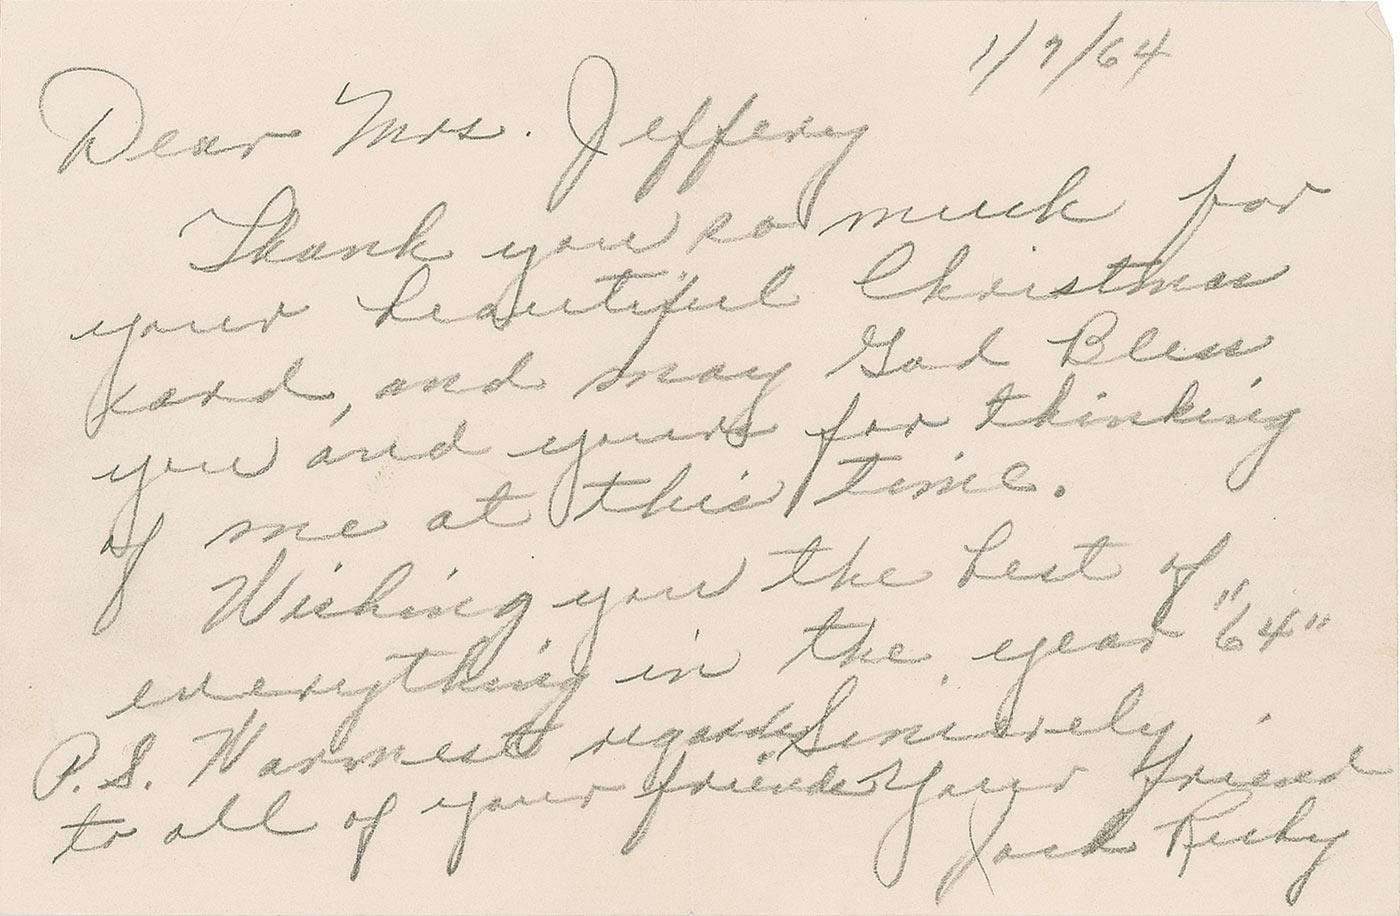 1/7/64
Dear Mrs. Jeffery
Thank you so much for
your beautiful Christmas
card, and may God Bless
you and yours for thinking
of me at this time.
Wishing you the best of
everything in the year "64"
Sincerely,
Your friend
Jack Ruby
P.S. Warmest regards
to all of your friends